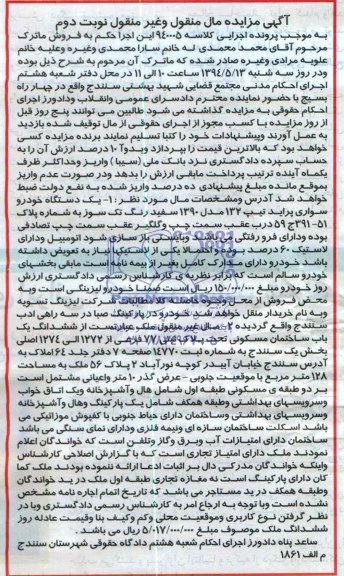 آگهی مزایده مال منقول وغیر منقول نوبت دوم
به موجب پرونده اجرایی کلاسه ۹۴۰۰۰۵ این اجرا حکم به فروش ماترک
مرحوم آقای محمد محمدی له خانم سارا محمدی وغیره وعلیه خانم
علویه مرادی وغیره صادر شده که ماترک آن مرحوم به شرح ذیل بوده
ودر روز سه شنبه ۱۳۹٤/۵/۱۳ ساعت ۱۰ الی ۱۱ در محل دفتر شعبه هشتم
اجرای احکام مدنی مجتمع قضایی شهید بهشتی سنندج واقع در چهار راه
بسیج با حضور نماینده محترم دادسرای عمومی وانقلاب ودادورز اجرای
احکام حقوقی به مزایده گذاشته می شود طالبین می توانند پنج روز قبل
از روز مزایده با کسب مجوز از اجرای حقوقی از مال توقیف شده بازدید
به عمل آورند وپیشنهادات خود را کتبا تسلیم نمایند برنده مزایده کسی
خواهد بود که بالاترین قیمت را بپردازد وبدوا ۱۰ درصد ارزش آن را به
حساب سپرده دادگستری نزد بانک ملی (سیبا) واریز وحداکثر ظرف
یکماه آینده ترتیب پرداخت مابقی ارزش را بدهد ودر صورت عدم واریز
بموقع مانده مبلغ پیشنهادی ده درصد واریز شده به نفع دولت ضبط
خواهد شد آدرس ومشخصات مال مورد نظر: ۱- یک دستگاه خودرو
سواری پراید تیپ ۱۳۲ مدل ۱۳۹۰ سفید رنگ تک سوز به شماره پلاک
۵۱-۳۹۱ج۵۹ درب عقب سمت چپ وگلگیر عقب سمت چپ تصادفی
بوده ودارای فرورفتگی می باشد وبایستی باز سازی شود اتومبیل ودارای
لاستیک ۶۰ درصد
باشد خودرو دارای مدارک کامل بغیر از بیمه نامه است مابقی بخشهای
خودرو سالم است که برابر نظریه ی کارشناس رسمی دادگستری ارزش
روز خودرو مبلغ ۱۵۰/۰۰۰/۰۰۰ ریال است ضمنا خودرو لیزینگی است وبه
محض فروش از محل وجوه حاصله کلا مطالبات شرکت لیزینگ تسویه
وبه نام خریدار منتقل خواهد شد خودرو در پارکینگ صبا در سه راهی ادب
سنندج واقع گردیده ۲- مال غیر منقول ملک عبارتست از ششدانگ یک
باب ساختمان مسکونی تحت پلاک
بخش یک سنندج به شماره ثبت ۱۴۷۷۰ صفحه ۷ دفتر جلد ۶۴ املاک به
آدرس سنندج خیابان آبیدر کوچه نورآباد ۲ پلاک ۵۶ ملک به مساحت
۱۲۸ متر مربع با موقعیت جنوبی - عرض گذر ۱۰ متر واعیانی مشتمل است
بر دو طبقه ی مسکونی طبقه اول شامل هال وآشپزخانه ویک اتاق خواب
وسرویسهای بهداشتی وطبقه همکف شامل یک پارکینگ وهال وآشپزخانه
وسرویسهای بهداشتی وساختمان دارای حیاط جنوبی با کفپوش موزائیکی می
باشد اسکلت ساختمان سازه ای ونیمه فلزی ودارای نمای سنگی می باشد
ساختمان دارای امتیازات آب وبرق وگاز وتلفن است که خواندگان اعلام
نمودند ملک دارای امتیاز تجاری است که با گزارش اصلاحی کارشناس
واینکه خواندگان مدرکی دال بر اثبات ادعا ارائه ننموده بودند ملک کما
کان دارای پارکینگ است نه مغازه تجاری طبقه اول ملک در ید خواندگان
وطبقه همکف در ید مستاجر می باشد که تاریخ اتمام اجاره نامه مشخص
نشده است وبا توجه به ارجاع امر به کارشناس رسمی دادگستری وبا در
نظر گرفتن نوع کاربری وموقعیت محلی وکم وکیف بنا وقیمت عادله روز
ششدانگ ملک موصوف مبلغ ۵/۰۱۷/۰۰۰/۰۰۰ ریال می باشد.
ساعد پناه دادورز اجرای احکام شعبه هشتم دادگاه حقوقی شهرستان سنندج
م الف ۱۸۶۱